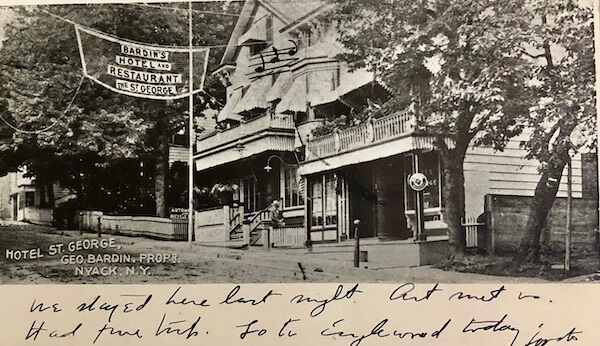 BARDIN'S
HOTEL AND
RESTAURANT
THE ST. GEORGE
HOTEL ST. GEORGE,
GEO. BARDIN. PROP'R.
NYACK. N.Y.
We stayed here last night. Art met us.
Had fine trip. Go to Englewood today